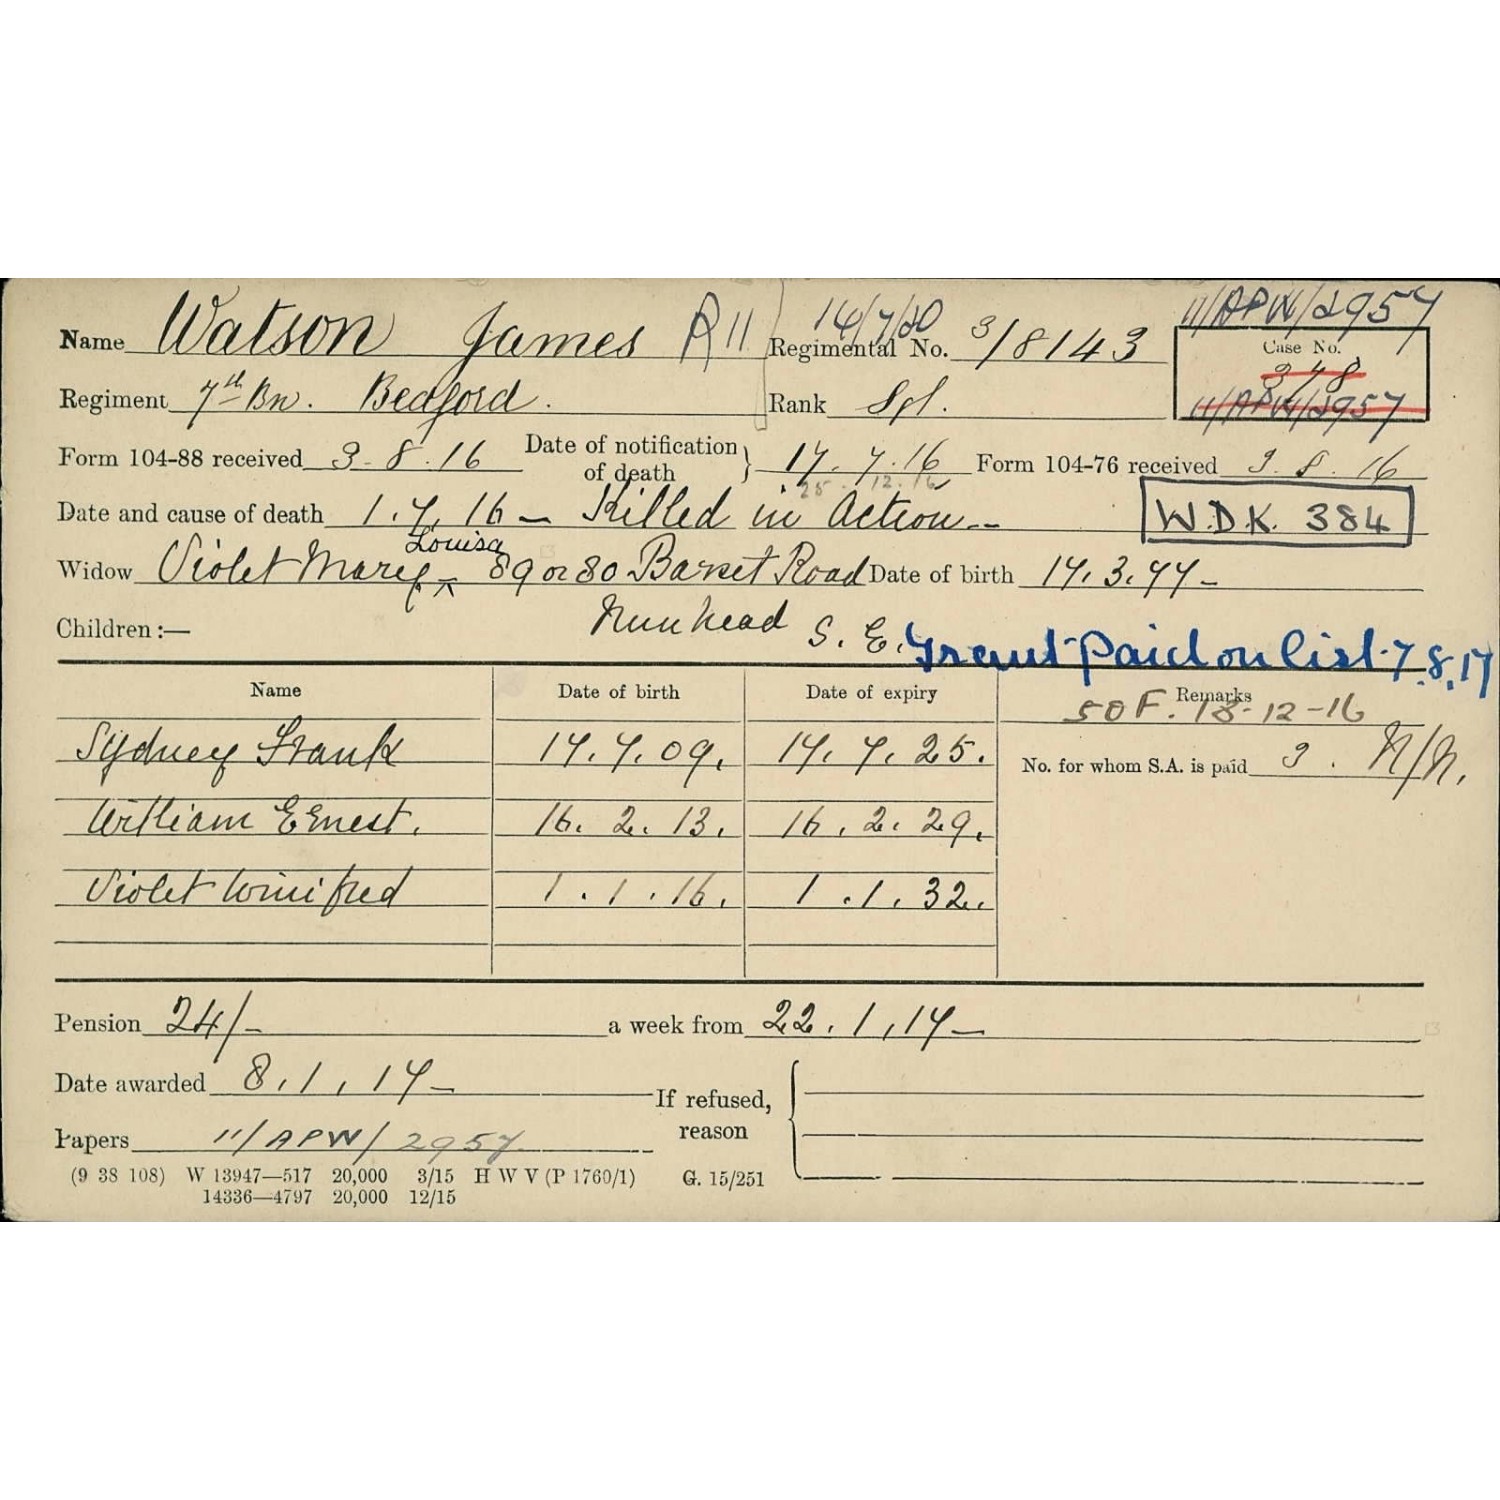 11/APW/2957
Name Watson James R11 16/7/20 Regimental No. 3/8143
Case No.
378
11/APW/2957
Regiment 7th Bn. Bedford. Rank Sgt.
Form 104-88 received 3.8.16 Date of notification of death } 17.7.16 Form 104-76 received 3.8.16
25.12.16
Date and cause of death 1.7.16 - Killed in Action -
W.D.K. 384
Louisa
Widow Violet Mary ^ 89 or 80 Barset Road Date of birth 17.3.77 -
Children :— Nunhead S.E.
Grant Paid on list 7.8.17
Name Date of birth Date of expiry Remarks
50F. 18-12-16
Sydney Frank 17.7.09. 17.7.25.
No. for whom S.A. is paid 3. N/N.
William Ernest. 16.2.13. 16.2.29.
Violet Winifred 1.1.16. 1.1.32.
Pension 24/- a week from 22.1.17 -
Date awarded 8.1.17 -
If refused, reason
Papers 11/APW/2957
(9 38 108) W 13947—517 20,000 3/15 H W V (P 1760/1) G. 15/251
14336—4797 20,000 12/15